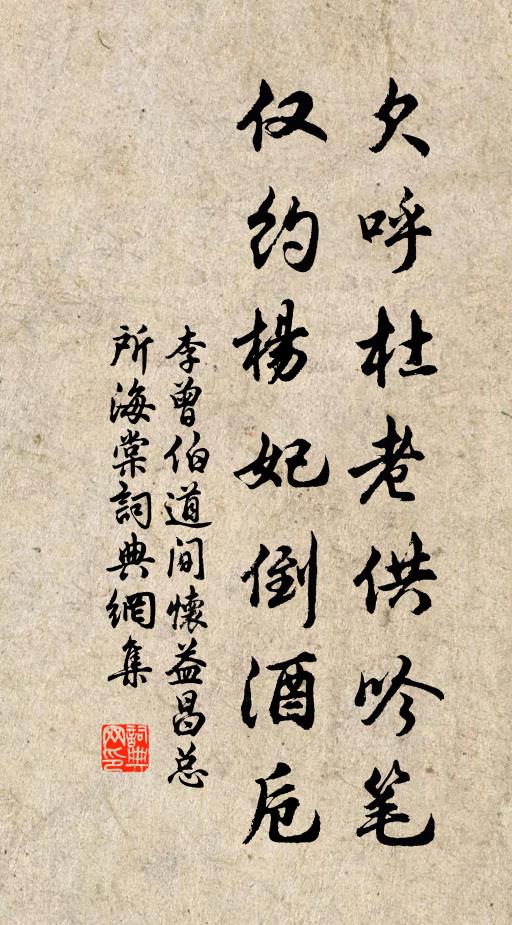 欠呼杜老供吟笔
仅约楊妃倒酒卮
李曾伯道间懷益昌总
所海棠詞典網集
詞典
网印